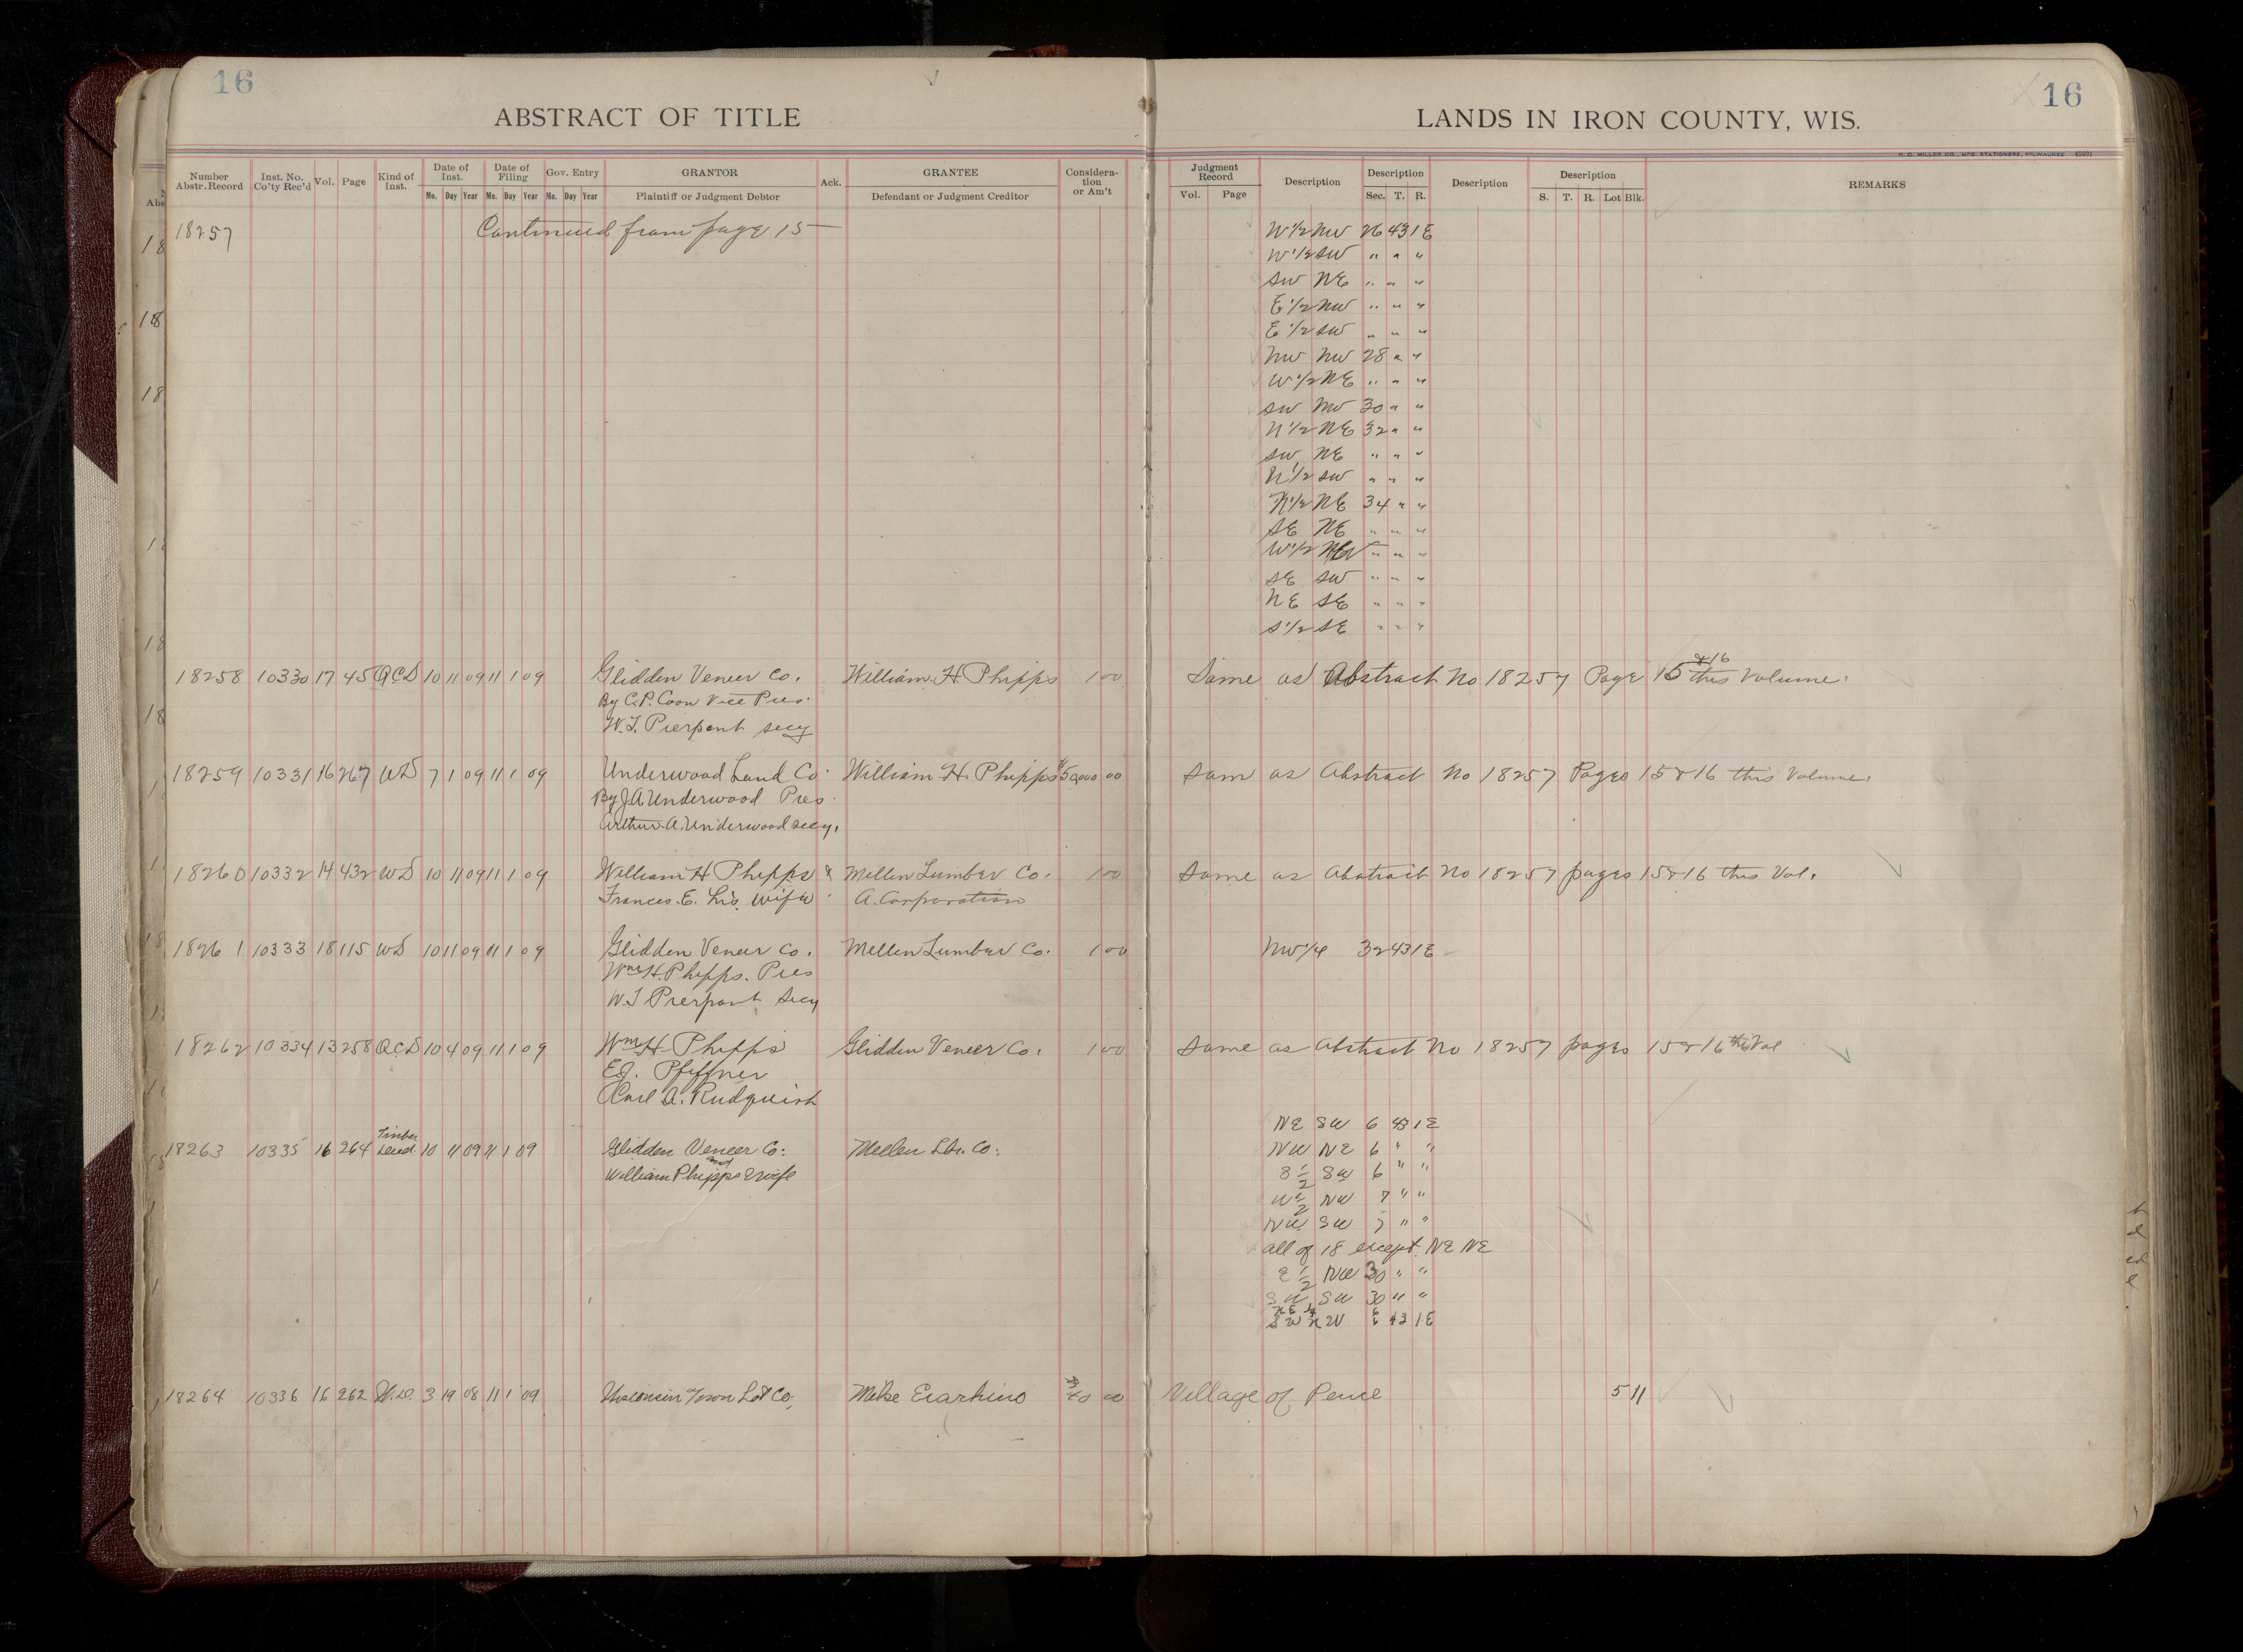 16
ABSTRACT OF TITLE
Number Abstr. Record Inst. No. Co'ty Rec'd Vol. Page Kind of Inst. Date of Inst. Date of Filing Gov. Entry GRANTOR Ack. GRANTEE Considera-tion or Am't
Mo. Day Year Mo. Day Year Mo. Day Year Plaintiff or Judgment Debtor Defendant or Judgment Creditor
18257 Continued from page 15
18258 10330 17 45 QCD 10 11 09 11 1 09 Glidden Veneer Co. William H. Phipps 1 00
By C.P. Coon Vice Pres.
W.T. Pierpont secy
18259 10331 16 267 WD 7 1 09 11 1 09 Underwood Land Co. William H. Phipps $50,000 00
By J.A. Underwood Pres.
Arthur A. Underwood secy.
18260 10332 14 432 WD 10 11 09 11 1 09 William H Phipps & Mellen Lumber Co. 1 00
Frances E. his wife A. Corporation
18261 10333 18 115 WD 10 11 09 11 1 09 Glidden Veneer Co. Mellen Lumber Co. 1 00
Wm H. Phipps. Pres
W.T Pierpont Secy
18262 10334 13 258 QCD 10 4 09 11 1 09 Wm H. Phipps Glidden Veneer Co. 1 00
E.J. Pfiffner
Carl A. Rudquist
18263 10335 16 264 Timber Deed 10 11 09 11 1 09 Glidden Veneer Co. Mellen Lbr. Co.
and
William Phipps & wife
18264 10336 16 262 W.D. 3 19 08 11 1 09 Wisconsin Town Lot Co. Mike 00
16
LANDS IN IRON COUNTY, WIS.
H. C. MILLER CO., MFG. STATIONERS, MILWAUKEE
Judgment Record Description Description Description Description REMARKS
Vol. Page Sec. T. R. S. T. R. Lot Blk.
W 1/2 NW 26 43 1E
W 1/2 SW " " "
SW NE " " "
E 1/2 NW " " "
E 1/2 SW " " "
NW NW 28 " "
W 1/2 NE " " "
SW NW 30 " "
N 1/2 NE 32 " "
SW NE " " "
N 1/2 SW " " "
N 1/2 NE 34 " "
SE NE " " "
W 1/2 " " "
SE SW " " "
NE SE " " "
S 1/2 SE " " "
Same as Abstract No 18257 Page 15 & 16 this Volume.
Sam as Abstract No 18257 Pages 15 & 16 this Volume.
Same as Abstract No 18257 pages 15 & 16 this Vol.
NW 1/4 32 43 1E
Same as Abstract No 18257 pages 15 & 16 this Vol
NE SW 6 43 1E
NW NE 6 " "
S 1/2 SW 6 " "
W 1/2 NW 7 " "
NW SW 7 " "
all of 18 except NE NE
E 1/2 NW 30 " "
SW SW 30 " "
SW NW 6 43 1E
Village of Pence 5 11